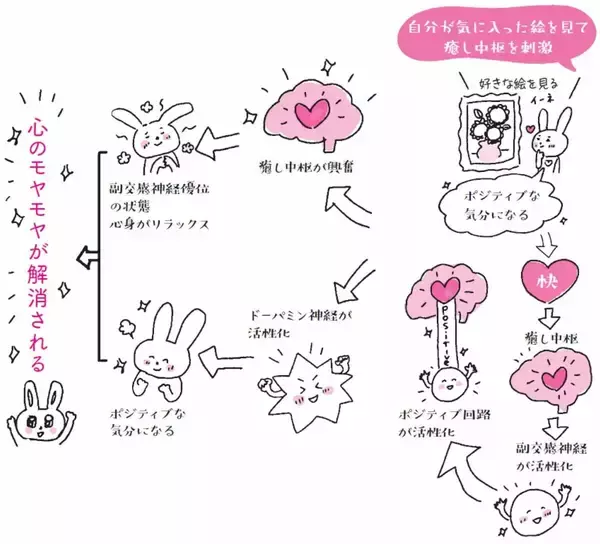 自分が気に入った絵を見て
癒し中枢を刺激
好きな絵を見る
イーネ
ポジティブな
気分になる
快
癒し中枢
副交感神経
が活性化
POSITIVE
ポジティブ回路
が活性化
癒し中枢が興奮
副交感神経優位
の状態
心身がリラックス
ドーパミン神経が
活性化
ポジティブな
気分になる
心のモヤモヤが解消される